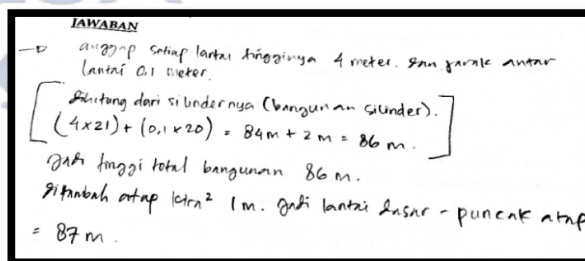 JAWABAN
→ anggap setiap lantai tingginya 4 meter. dan jarak antar
lantai 0,1 meter.
dihitung dari silindernya (bangunan silinder).
(4x21) + (0,1 x 20) = 84m + 2 m = 86 m.
Jadi tinggi total bangunan 86 m.
ditambah atap kira² 1m. Jadi lantai dasar - puncak atap
= 87 m.